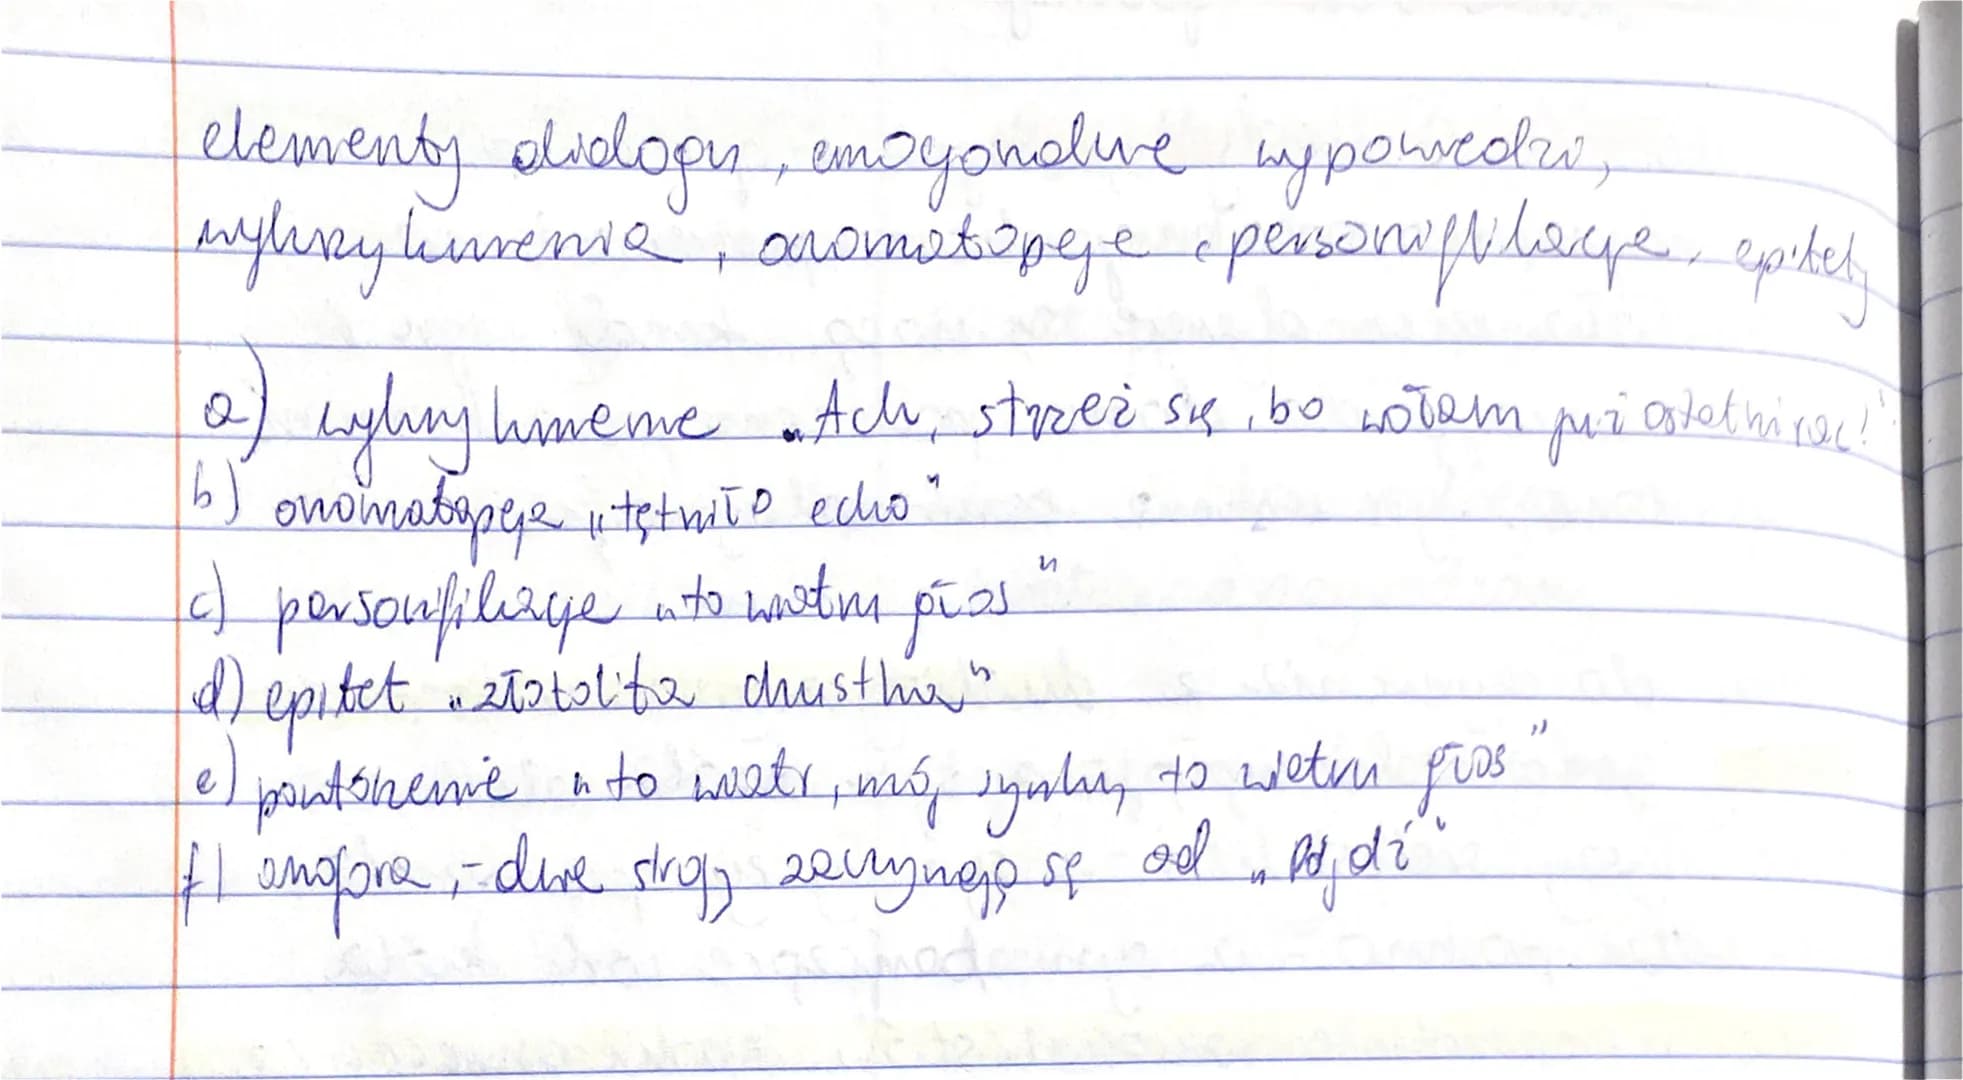 elementy dialogu, emocjonalne wypowiedzi,
wykrzyknienia, onomatopeje, personifikacje, epitety
a) wykrzyknienie „Ach, strzeż się, bo wołam już ostatni raz!"
b) onomatopeja „tętniło echo"
c) personifikacje „to wiatru głos"
d) epitet „złotolita chustka"
e) powtórzenie „to wiatr, mój synku, to wiatru głos"
f) anafora, - dwie strofy zaczynają się od „Pójdź"